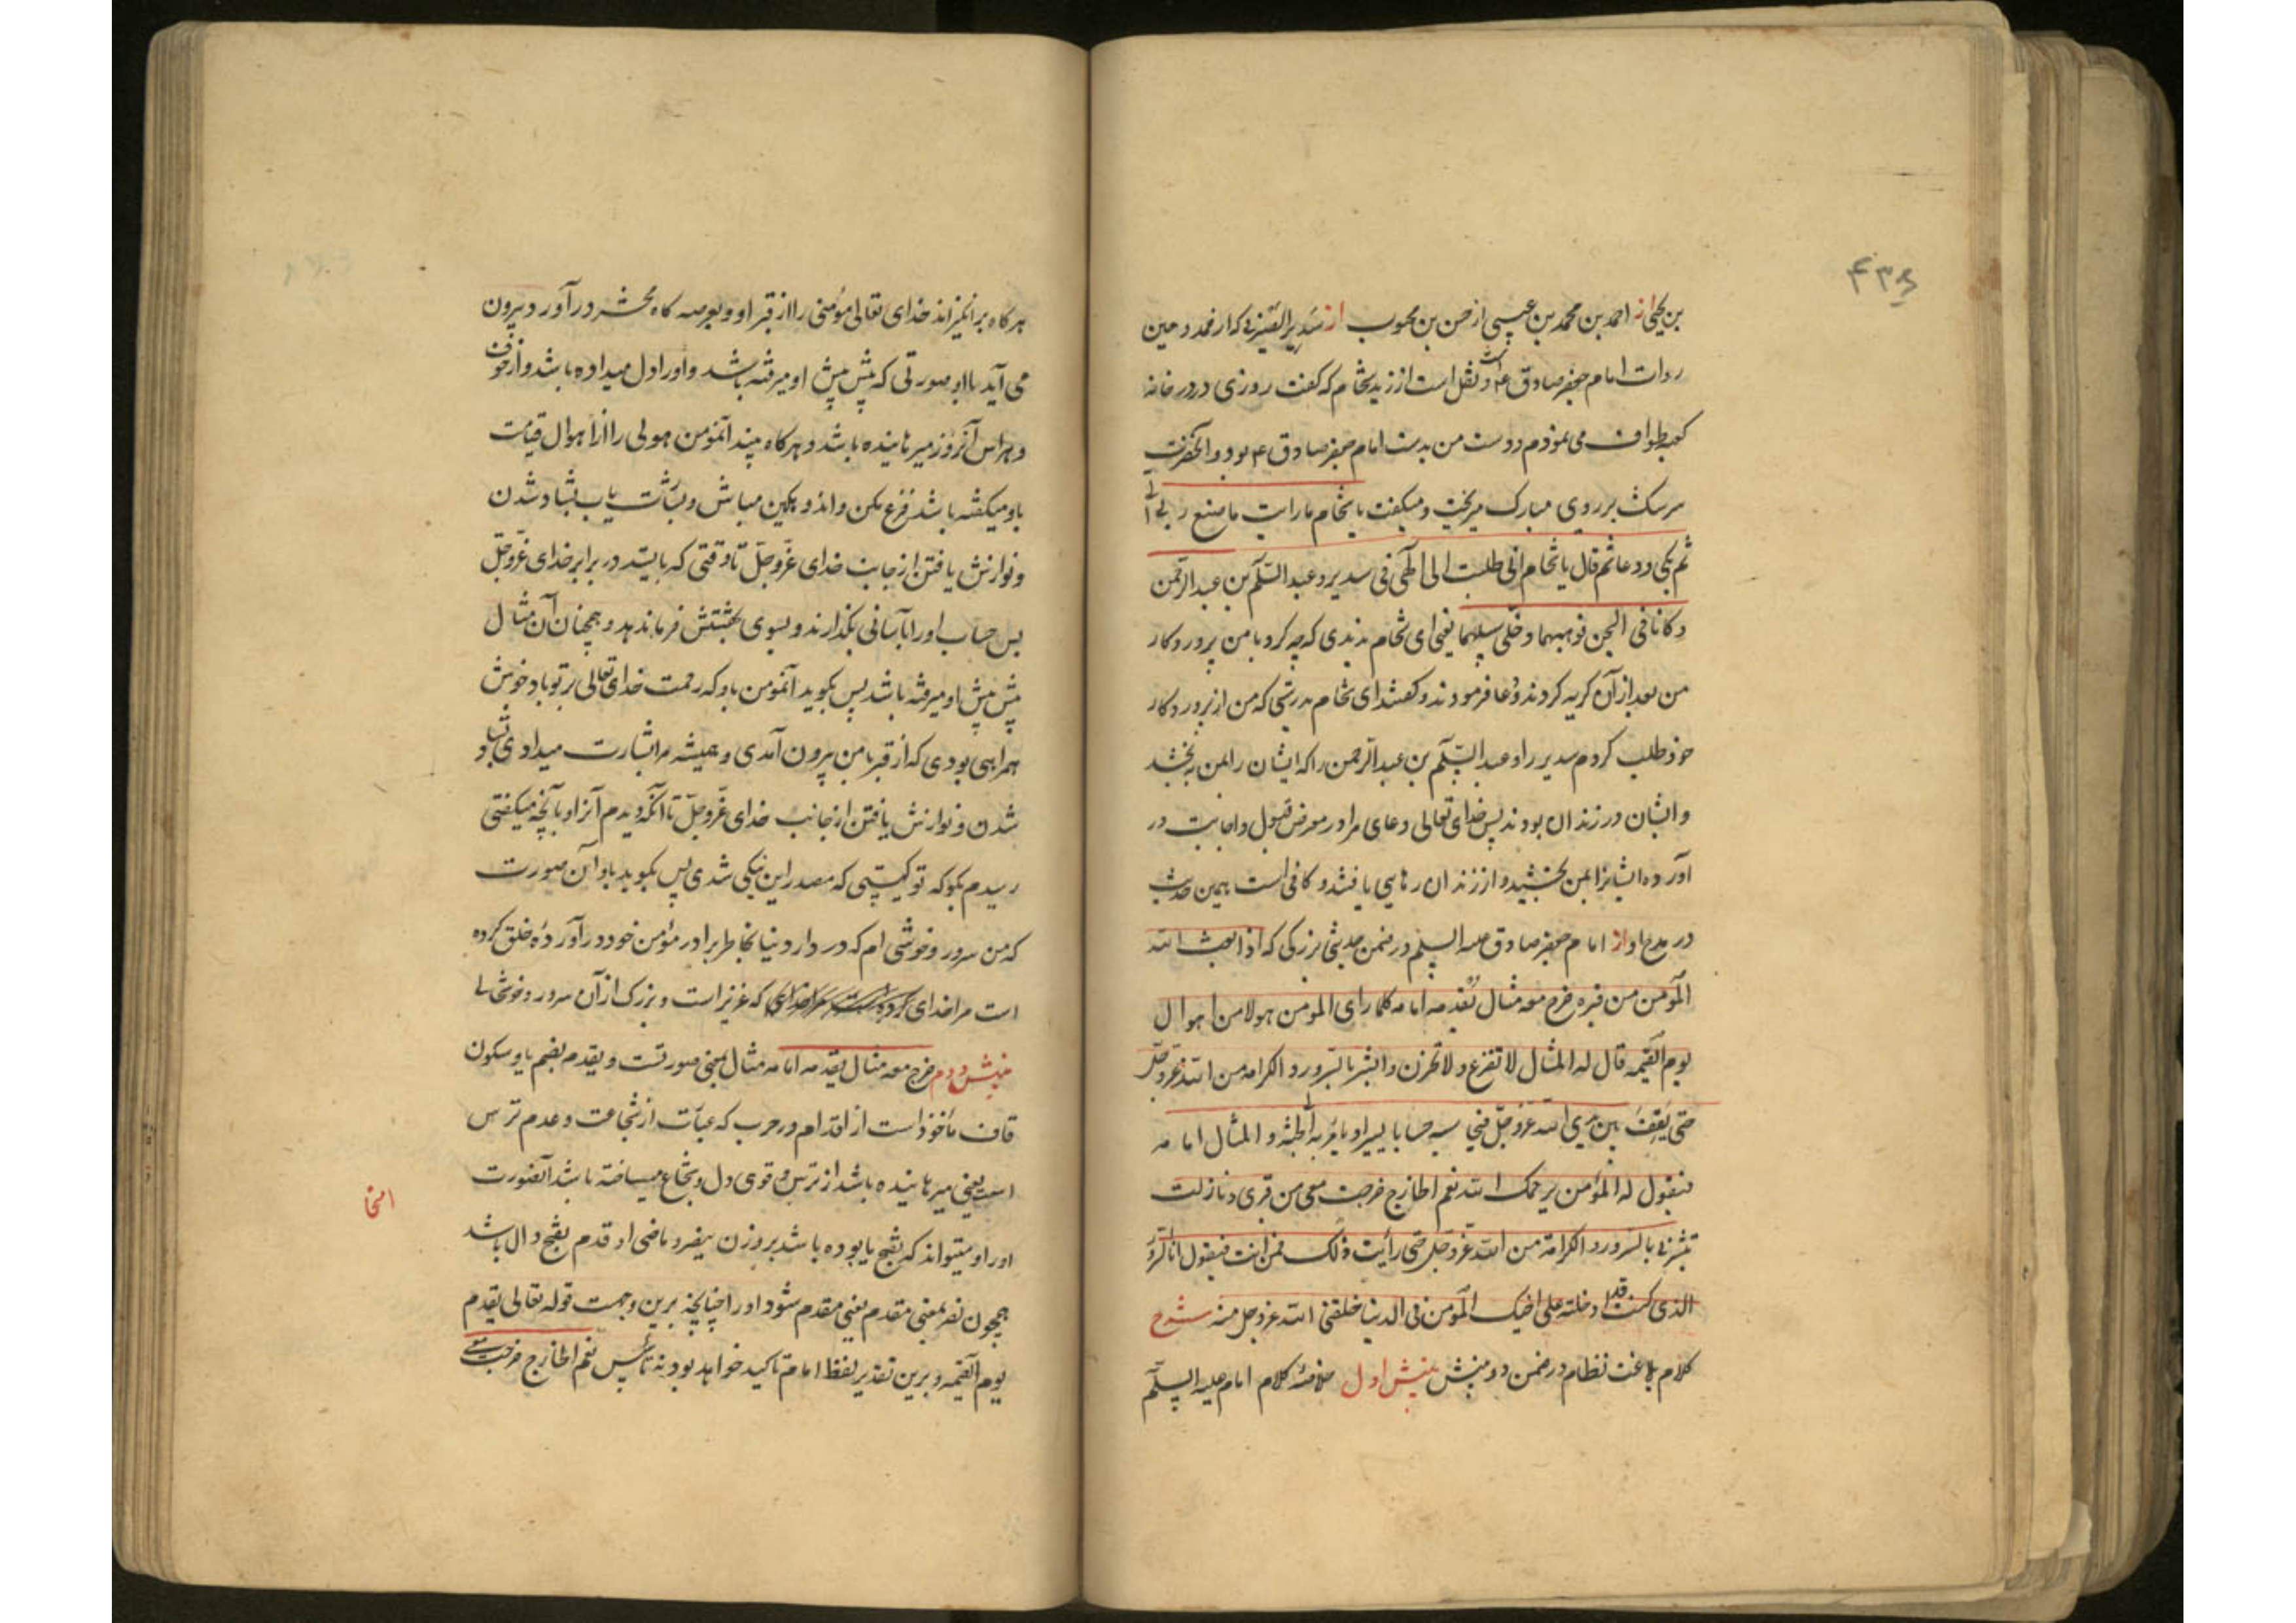 ۴۳۶
بن یحیی از احمد بن محمد بن عیسی از حسن بن محبوب از سَدیر الصیرفی که از عمد و مین
روات امام جعفر صادق ع است و نقل است از زید شحام که گفت روزی در در خانه
کعبه طواف می نمودم و دست من بدست امام جعفر صادق ع بود و آنحضرت
سرشک بر روی مبارک میریخت و میگفت یا شحام ما رایت ما صنع ربی الی
ثم بکی و دعا ثم قال یا شحام انی طلبت الی الهی فی سدیر و عبد السلام بن عبد الرحمن
و کانا فی السجن فوهبهما و خلی سبیلهما یعنی ای شحام ندیدی که چه کرد با من پروردکار
من بعد از آن کریه کردند و دعا فرمودند و کفتند ای شحام بدرستی که من از پروردکار
خود طلب کردم سدیر را و عبد السلام بن عبد الرحمن را که ایشان را بمن بخشد
و ایشان در زندان بودند پس خدای تعالی دعای مرا در معرض قبول و اجابت در
آورده ایشانرا بمن بخشید و از زندان رهایی یافتند و کافی است همین حدیث
در مدح او از امام جعفر صادق علیه السلم در ضمن حدیثی بزرکی که اذا بعث الله
المؤمن من قبره خرج معه مثال یقدمه امامه کلما رای المومن هولا من اهوال
یوم القیمه قال له المثال لا تفزع و لا تحزن و ابشر بالسرور و الکرامه من الله عز و جل
حتی یقف بین یدی الله عز و جل فیحاسبه حسابا یسیرا و یامر به الی الجنه و المثال امامه
فیقول له المؤمن یرحمک الله نعم الخارج خرجت معی من قبری و ما زلت
تبشرنی بالسرور و الکرامة من الله عز و جل حتی رأیت ذلک فمن انت فیقول انا السرور
الذی کنت قد ادخلته علی اخیک المؤمن فی الدنیا خلقنی الله عز و جل منه شرح
کلام بلاغت نظام در ضمن دو بینش بینش اول خلاصهٔ کلام امام علیه السلم
هر کاه برانکیزاند خدای تعالی مؤمنی را از قبر او و بعرصه کاه محشر در آورد بیرون
می آید با او صورتی که پیش پیش او میرفته باشد و او را دل میداده باشد و از خوف
و هراس آنروز میرهانیده باشد و هر کاه بیند آنمؤمن هولی را از اهوال قیامت
باو میکفته باشد فزع مکن و اندوهکین مباش و بشارت یاب بشاد شدن
و نوازش یافتن از جانب خدای عز و جل تا وقتی که بایستد در برابر خدای عز و جل
پس حساب او را بآسانی بکذارند و بسوی بهشتش فرمان دهد و همچنان آن مثال
پیش پیش او میرفته باشد پس بکوید آنمؤمن باو که رحمت خدای تعالی بر تو باد خوش
همراهی بودی که از قبر با من بیرون آمدی و همیشه مرا بشارت میدادی بشاد
شدن و نوازش یافتن از جانب خدای عز و جل تا آنکه دیدم آنرا و بآنچه میکفتی
رسیدم بکو که تو کیستی که مصدر این نیکی شدی پس بکوید باو آن صورت
که من سرور و خوشی ام که در دار دنیا بخاطر برادر مؤمن خود در آورده خلق کرده
است مرا خدای که عزیز است و بزرک از آن سرور و خوشحالی
بینش دوم خرج معه مثال یقدمه امامه مثال بمعنی صورتست و یقدم بضم یا و سکون
قاف ماخوذ است از اقدام در حرب که عبارت از شجاعت و عدم ترس
است یعنی میرهانیده باشد از ترس و قوی دل و شجاع میساخته باشد آنصورت
او را و میتواند که بفتح یا بوده باشد بر وزن ینصر و ماضی او قدم بفتح دال باشد
همچون نصر بمعنی مقدم یعنی مقدم شود او را چنانچه برین وجهست قوله تعالی یقدم
یوم القیمه و برین تقدیر لفظ امامه تاکید خواهد بود نه تأسیس نعم الخارج خرجت معی